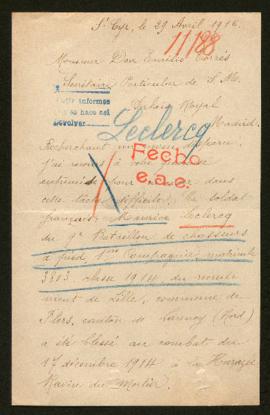 St Cyr, le 29 Avril 1916.
11/188
Monsieur Don Emilio Torrés
Secrétaire Particulier de S. M.
Palais Royal
Madrid.
devolver
Leclercq
Fecho
e.a.e.
Recherchant un disparu,
j'ai recours à votre
entremise pour dans
cette tâche difficile. Le soldat
français, Maurice Leclercq
du 9e Bataillon de chasseurs
à pied, 1ère Compagnie, matricule
3303 classe 1914 du recrute
ment de Lille, commune de
Flers, canton de Lannoy (Nord)
a été blessé au combat du
17 décembre 1914 à la Harazée
Ravin du Mortier.